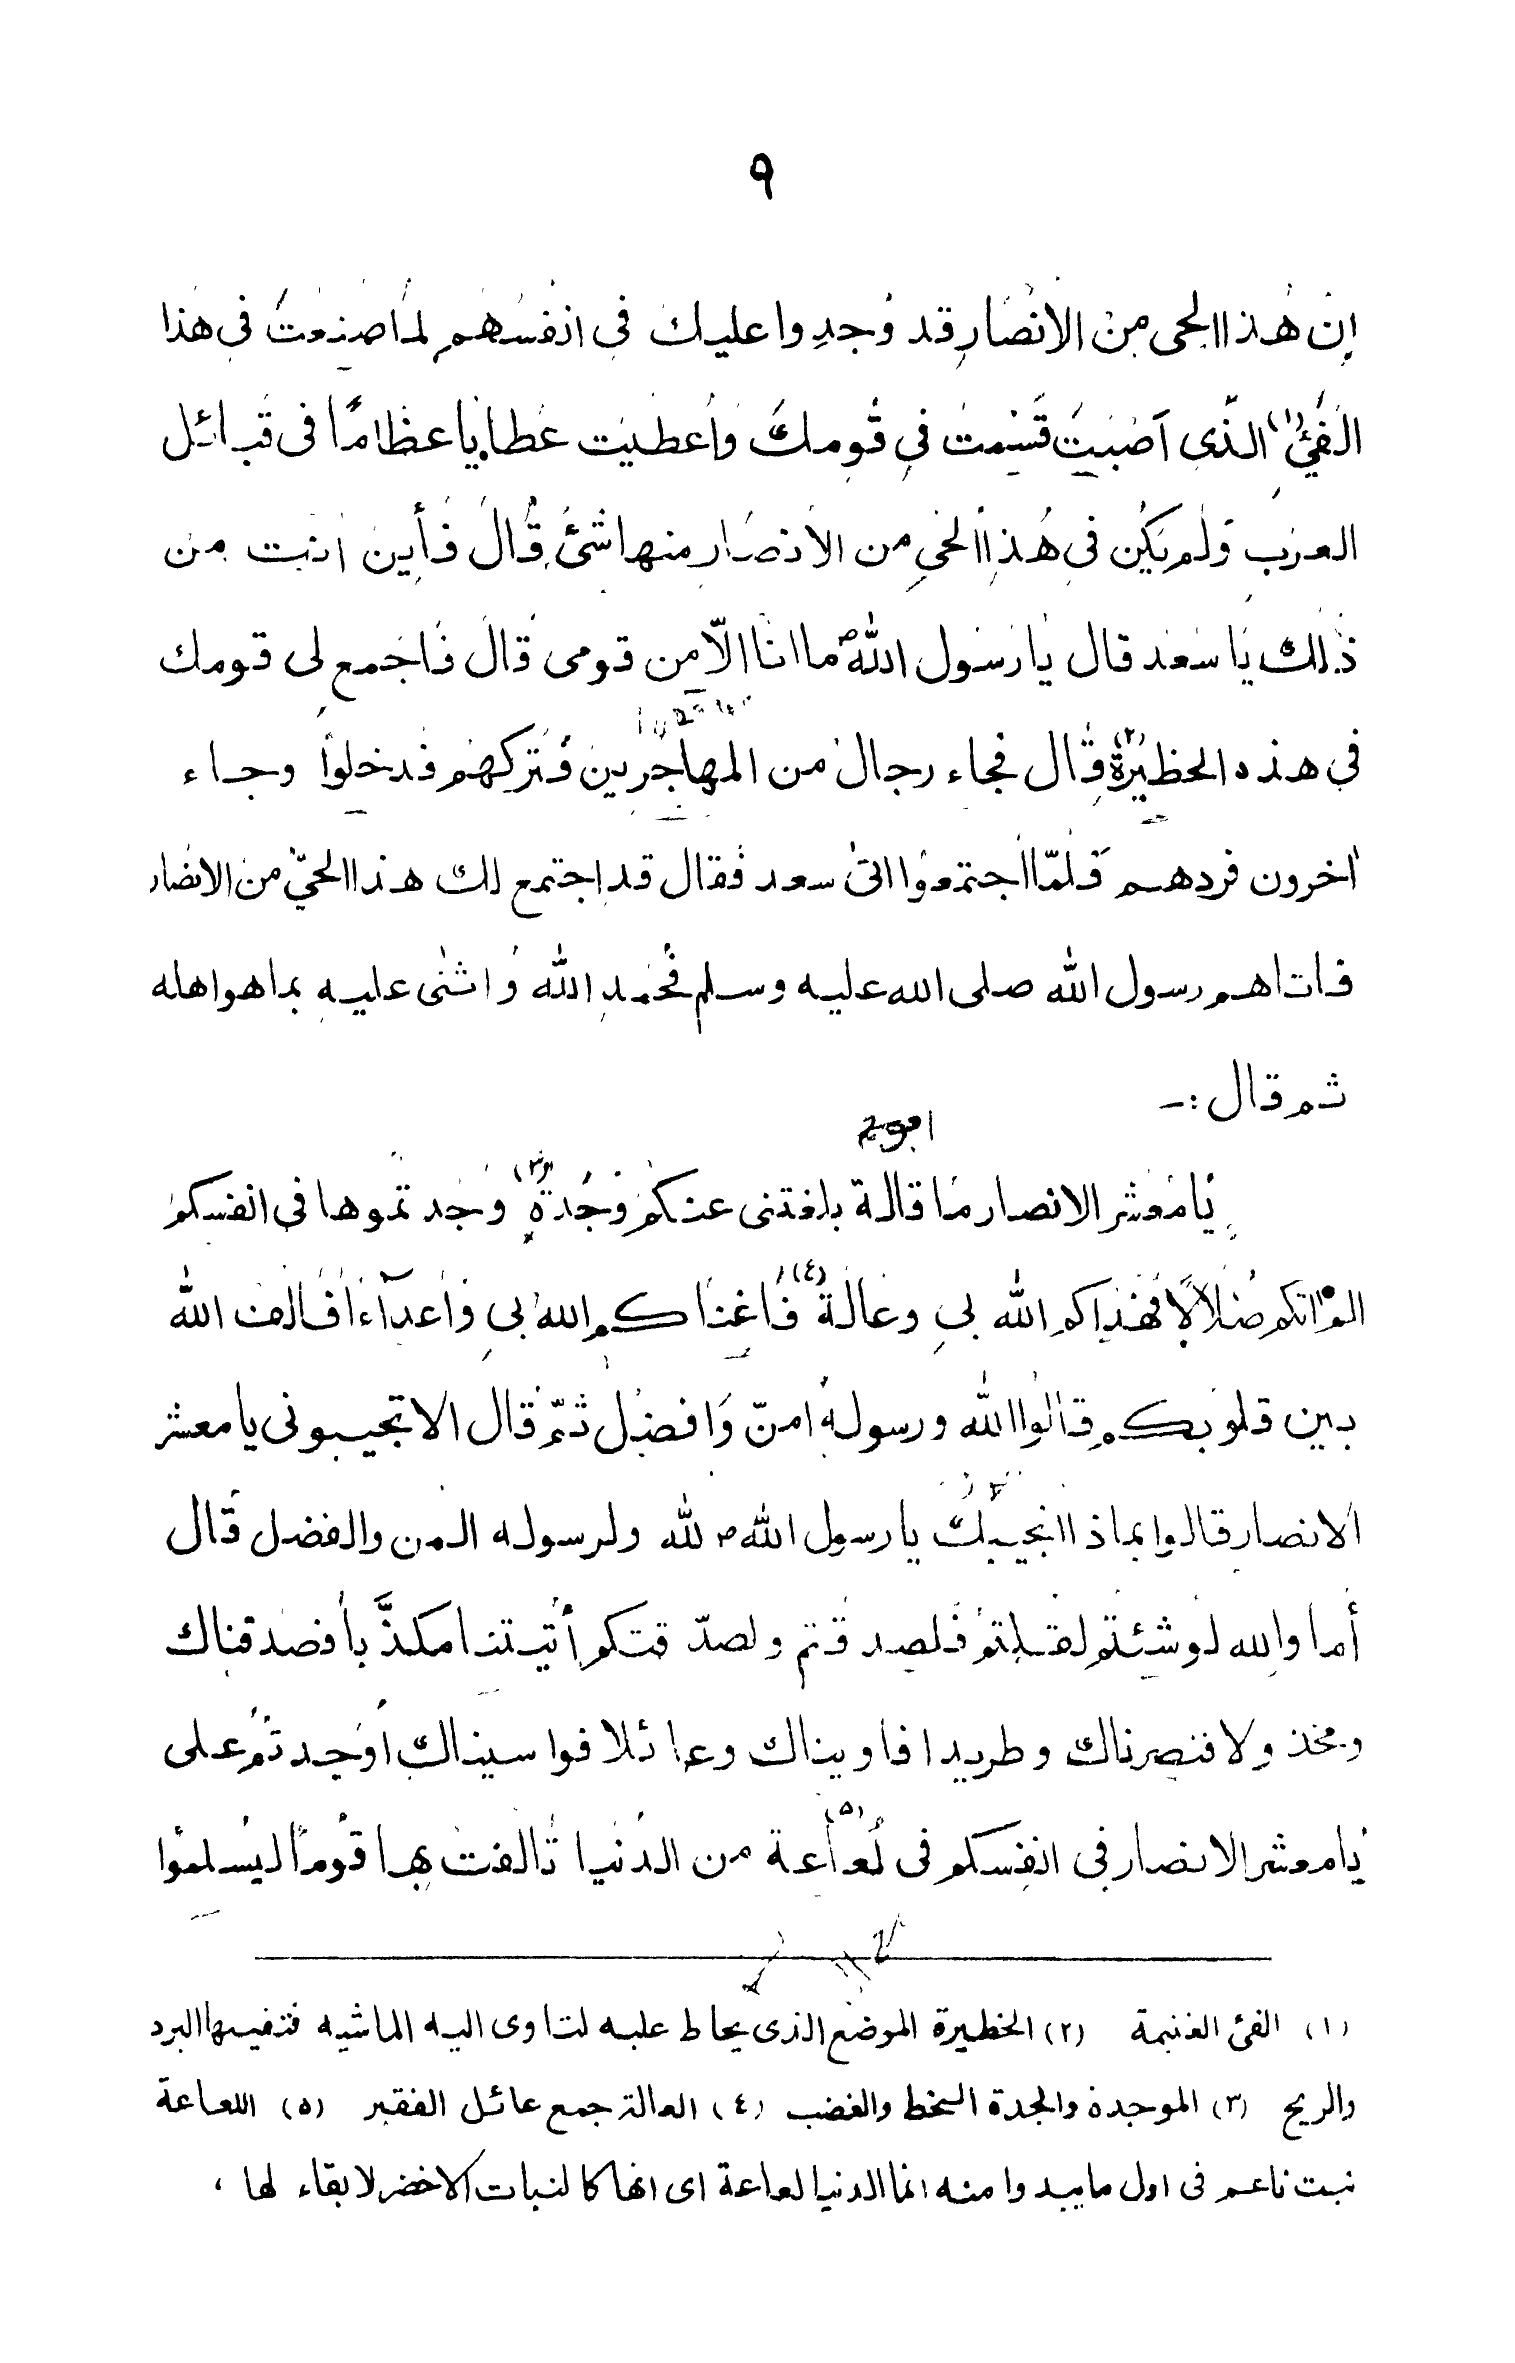 ٩
إن هذا الحى من الانصار قد وجدوا عليك فى انفسهم لما صنعت فى هذا
الفئ (١) الذى أصبت قسمت فى قومك وأعطيت عطايا عظاما فى قبائل
العرب ولم يكن فى هذا الحى من الانصار منها شئ قال فأين انت من
ذلك يا سعد قال يا رسول اللهؐ ما انا الّا من قومى قال فاجمع لى قومك
فى هذه الحظيرة (٢) قال فجاء رجال من المهاجرين فتركهم فدخلوا وجاء
اخرون فردهم فلمّا اجتمعوا اتى سعد فقال قد اجتمع لك هذا الحىّ من الانصار
فاتاهم رسول الله صلى الله عليه وسلم فحمد الله واثنى عليه بما هو اهله
ثم قال :-
يا معشر الانصار ما قالة بلغتنى عنكم وجدة (٣) وجدتموها فى انفسكم
الم اتكم ضلالا فهداكم الله بى وعالة (٤) فاغناكم الله بى وأعدآءا فالف الله
بين قلوبكم قالوا الله ورسوله امنّ وافضل ثمّ قال الا تجيبونى يا معشر
الانصار قالوا بماذا نجيبك يا رسول اللهؐ لله ولرسوله المن والفضل قال
أما والله لو شئتم لقلتم فلصدقتم ولصدّقتكم أتيتنا مكذّبا فصدقناك
ومخذولا فنصرناك وطريدا فاويناك وعائلا فواسيناك أوجدتم على
يا معشر الانصار فى انفسكم فى لعاعة (٥) من الدنيا تالفت بها قوما ليسلموا
(١) الفئ الغنيمة (٢) الحظيرة الموضع الذى يحاط عليه لتاوى اليه الماشيه فتقيها البرد
والريح (٣) الموجدة والجدة السخط والغضب (٤) العالة جمع عائل الفقير (٥) اللعاعة
نبت ناعم فى اول ما يبدوا منه انما الدنيا لعاعة اى انها كالنبات الاخضر لا بقاء لها ،